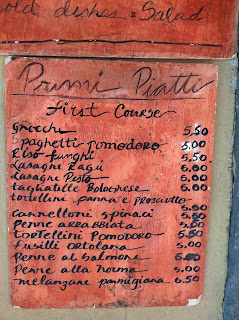 old dishes = Salad
Primi Piatti
First Course
gnocchi 5.50
spaghetti pomodoro 5.00
Riso funghi 5.50
Lasagne Ragù 6.00
Lasagne Pesto 6.00
tagliatelle Bolognese 6.00
tortellini panna e prosciutto 6.00
cannelloni spinaci 6.00
penne arrabbiata 5.00
tortellini Pomodoro 5.50
fusilli ortolana 5.00
penne al salmone 6.00
penne alla norma 5.00
melanzane parmigiana 6.50